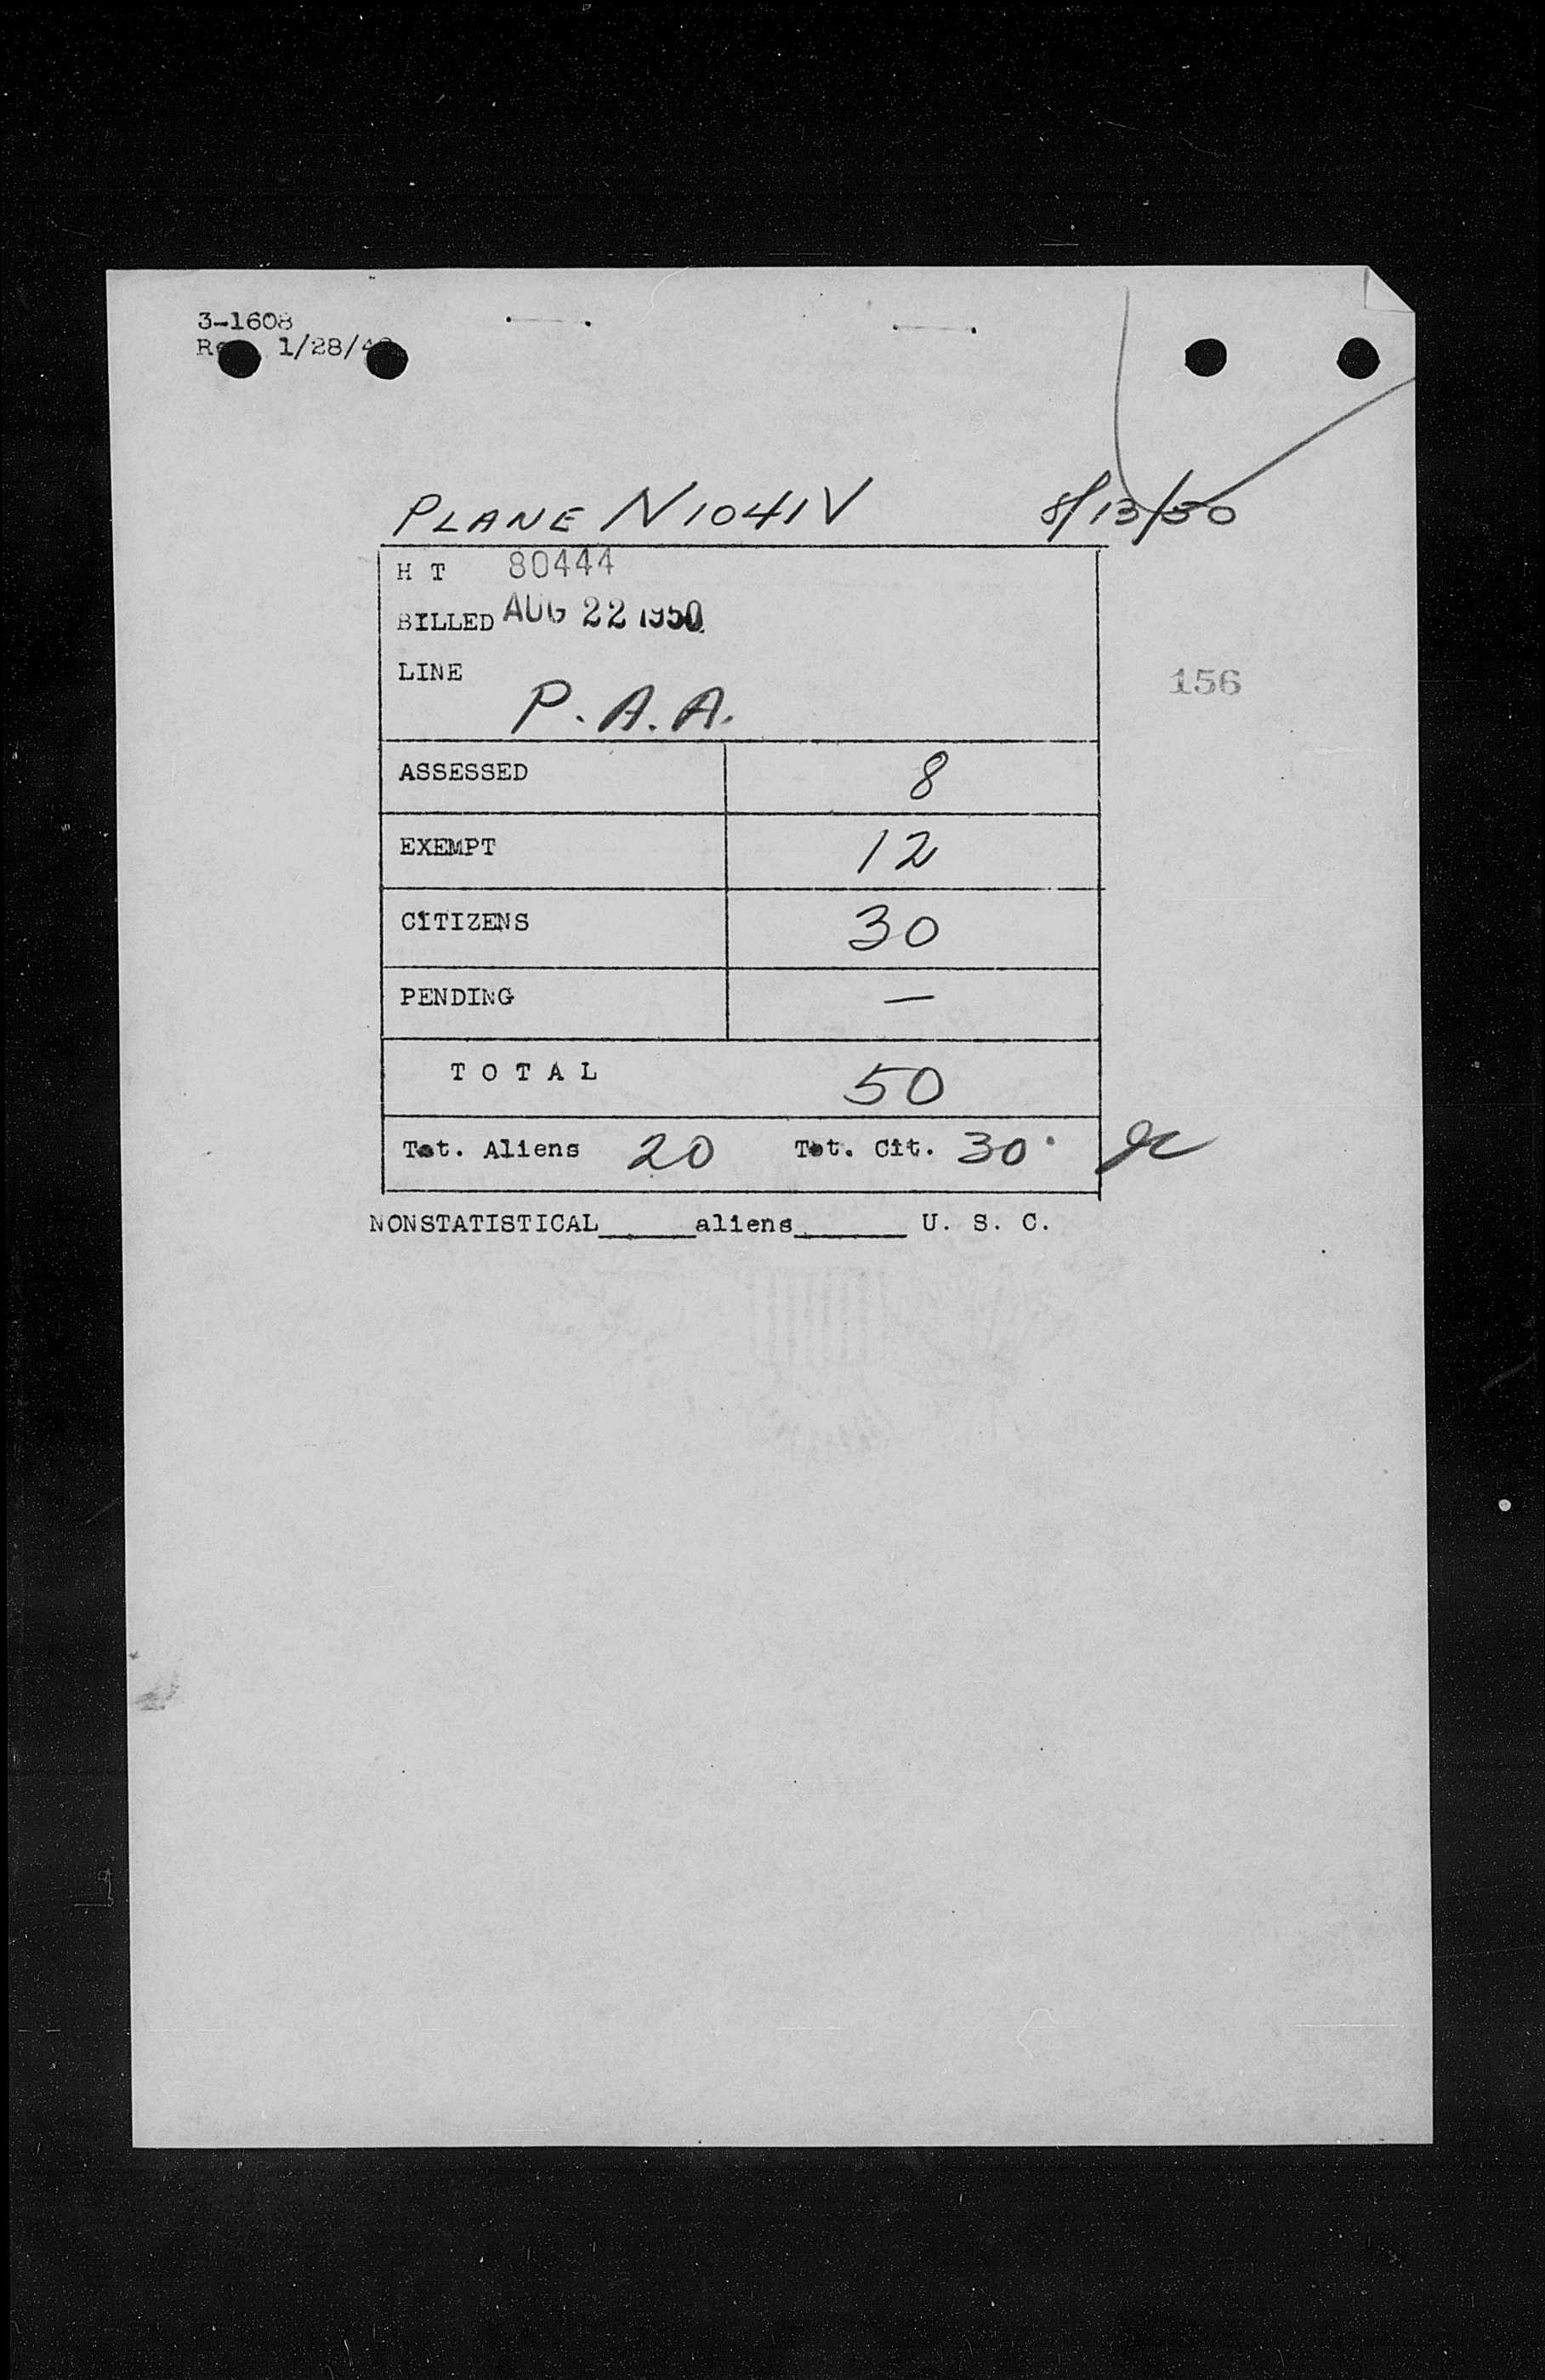 3-1608
1/28/
PLANE N1041V 8/13/50
H T 80444
BILLED AUG 22 1950
LINE
P. A. A.
156
ASSESSED 8
EXEMPT 12
CITIZENS 30
PENDING —
T O T A L 50
Tot. Aliens 20 Tot. Cit. 30
NONSTATISTICAL_____aliens______ U. S. C.